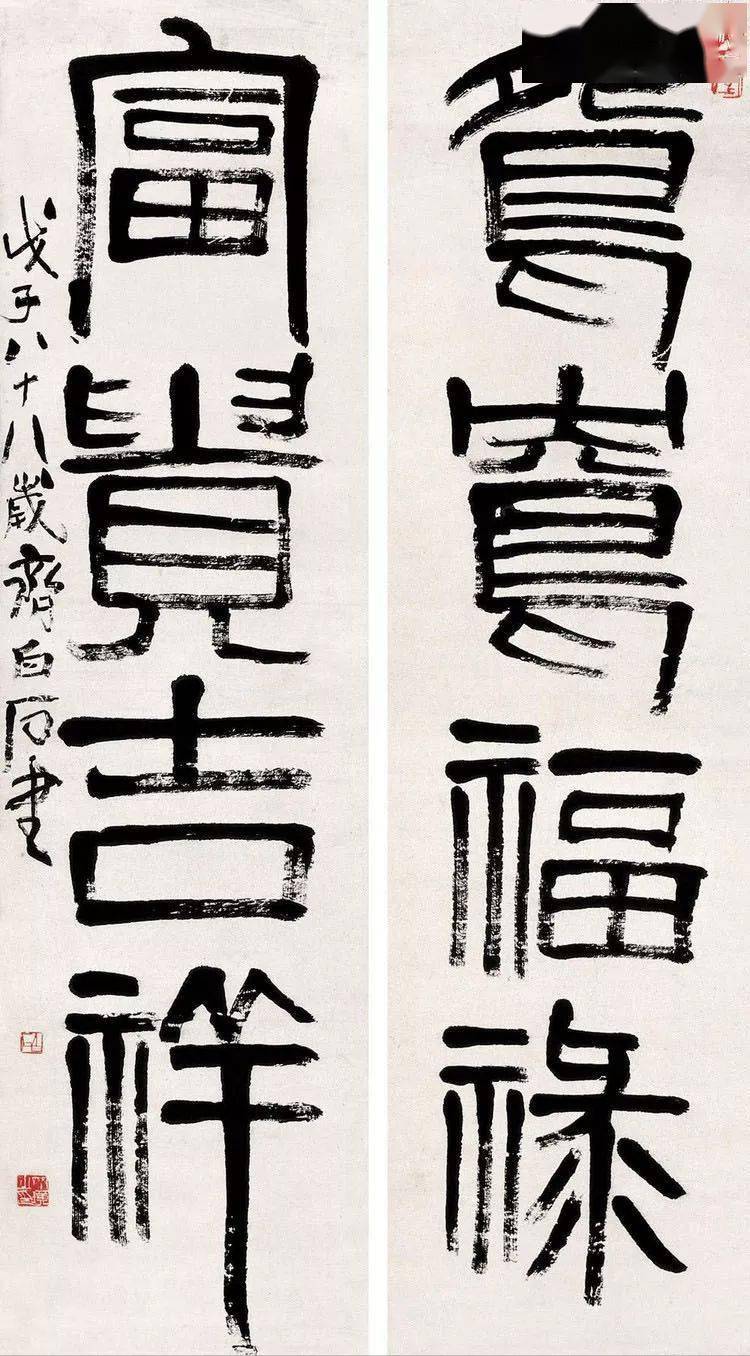 福祿
富貴吉祥
戊子八十八歲齊白石書